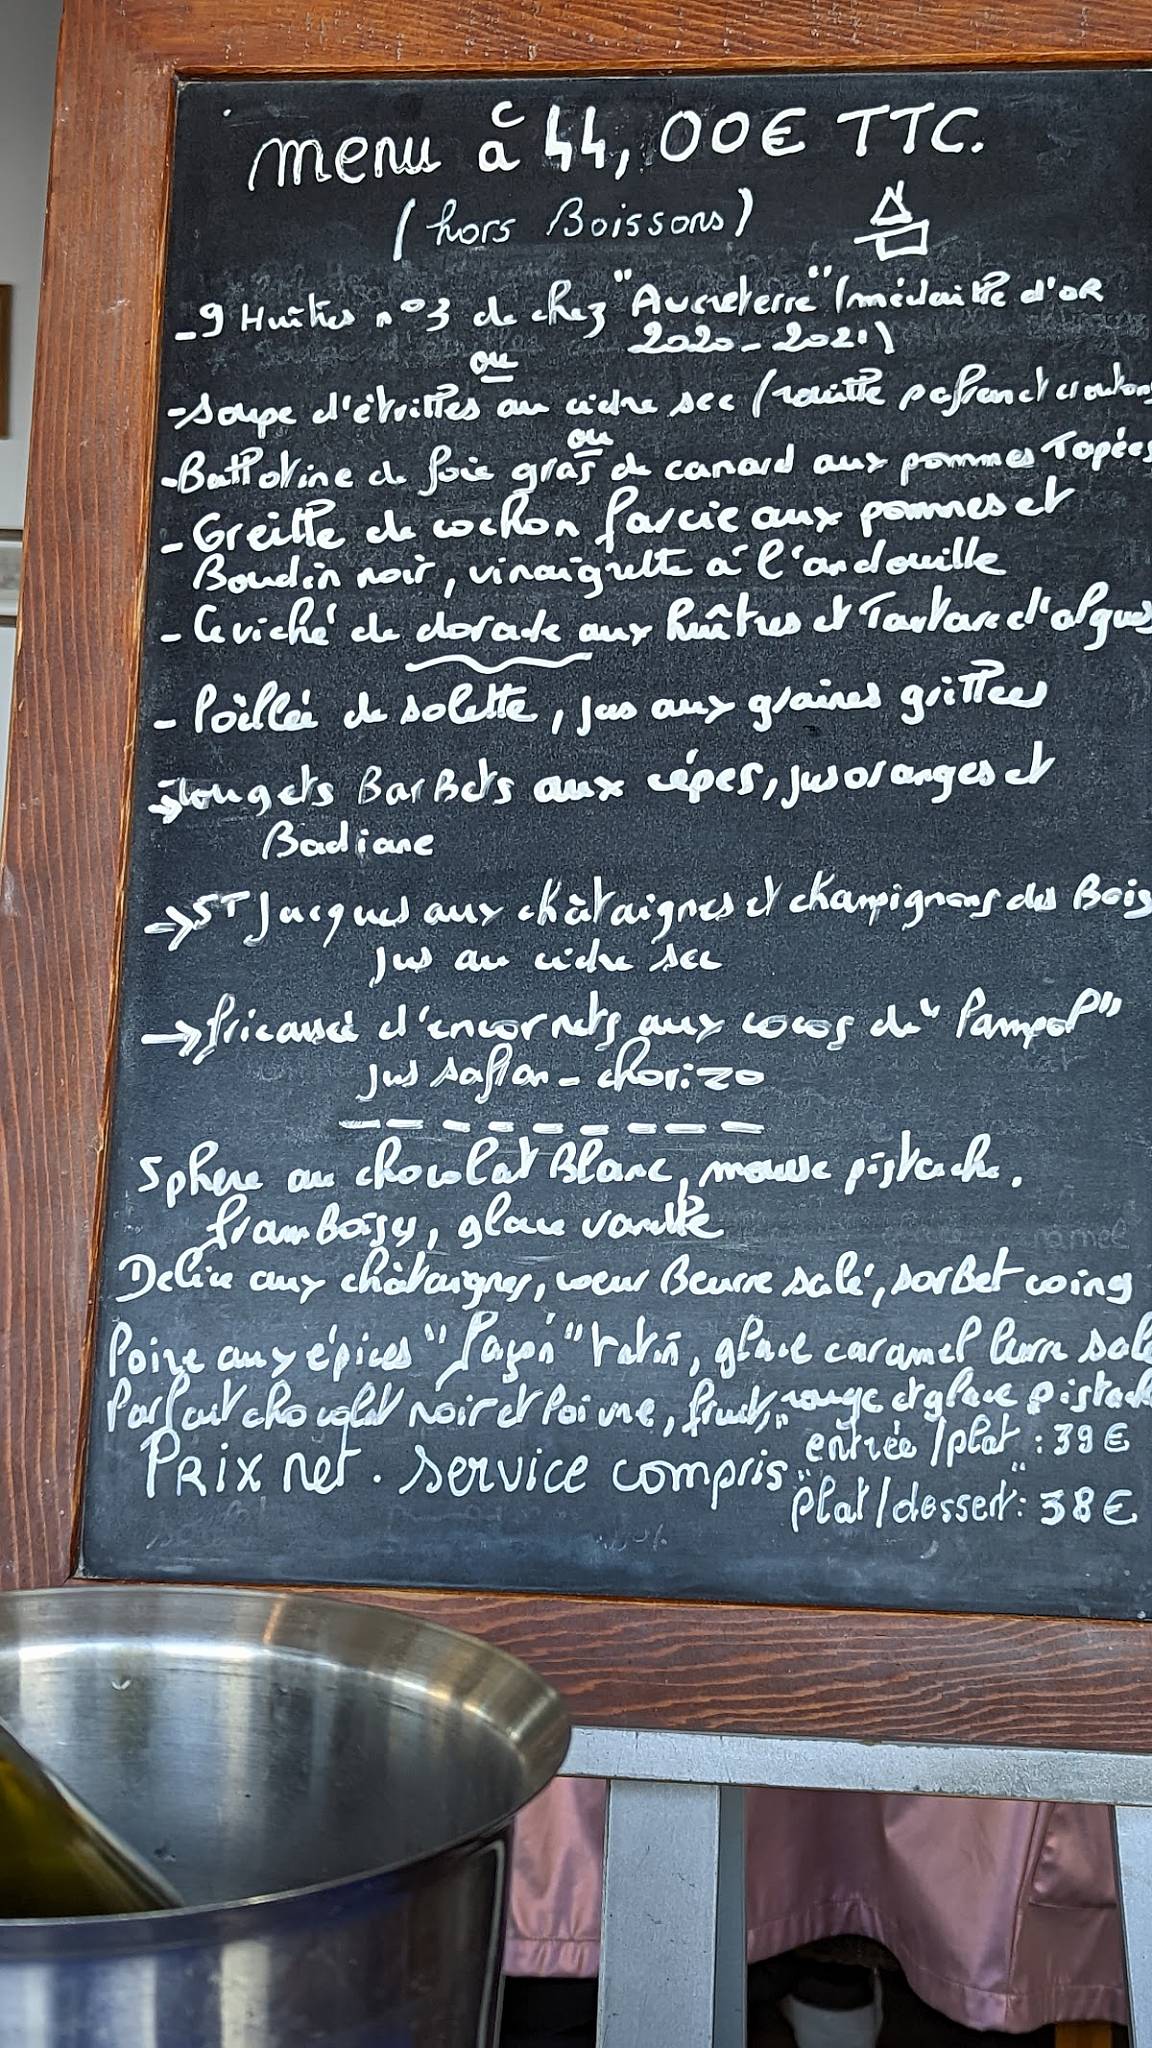 menu à 44,00€ TTC.
(hors Boissons)
- 9 Huîtres n°3 de chez "Aucreterre" (médaille d'OR
2020 - 2021)
ou
- Soupe d'étrilles au cidre sec (rouille safran et croutons
ou
- Ballotine de foie gras de canard aux pommes Tapées
- Oreille de cochon farcie aux pommes et
Boudin noir, vinaigrette à l'andouille
- Ceviché de dorade aux huîtres et Tartare d'algues
- Poêllée de solette, jus aux graines grillées
→ Rougets BarBets aux cépes, jus oranges et
Badiane
→ ST Jacques aux châtaignes et champignons des Bois
Jus au cidre sec
→ fricassée d'encornets aux cocos de "Pampol"
Jus safran - chorizo
Sphere au chocolat Blanc, mousse pistache,
framboises, glace vanille
Delice aux châtaignes, coeur Beurre salé, sorBet coing
Poire aux épices "façon" tatin, glace caramel beurre salé
Parfait chocolat noir et Poivre, fruits rouge et glace pistach
entrée/plat : 39€
PRix net. service compris
plat/dessert : 38€